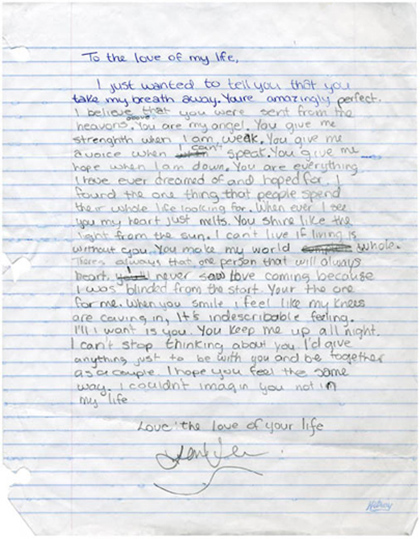 To the love of my life,
I just wanted to tell you that you
take my breath away. Youre amazingly perfect.
I believe that you were sent from the
heavons above. You are my angel. You give me
strenghth when I am weak. You give me
a voice when I can't speak. You give me
hope when I am down. You are everything
I have ever dreamed of and hoped for. I
found the one thing that people spend
their whole life looking for. When ever I see
you my heart just melts. You shine like the
light from the sun. I can't live if living is
without you. You make my world whole.
There always that one person that will always
heart. I never saw love coming because
I was blinded from the start. Your the one
for me. When you smile i feel like my knees
are caving in. It's indescribable feeling.
I'll I want is you. You keep me up all night.
I can't stop thinking about you. I'd give
anything just to be with you and be together
as a couple. I hope you feel the same
way. I couldn't imagin you not in
my life
Love: the love of your life
Hilroy